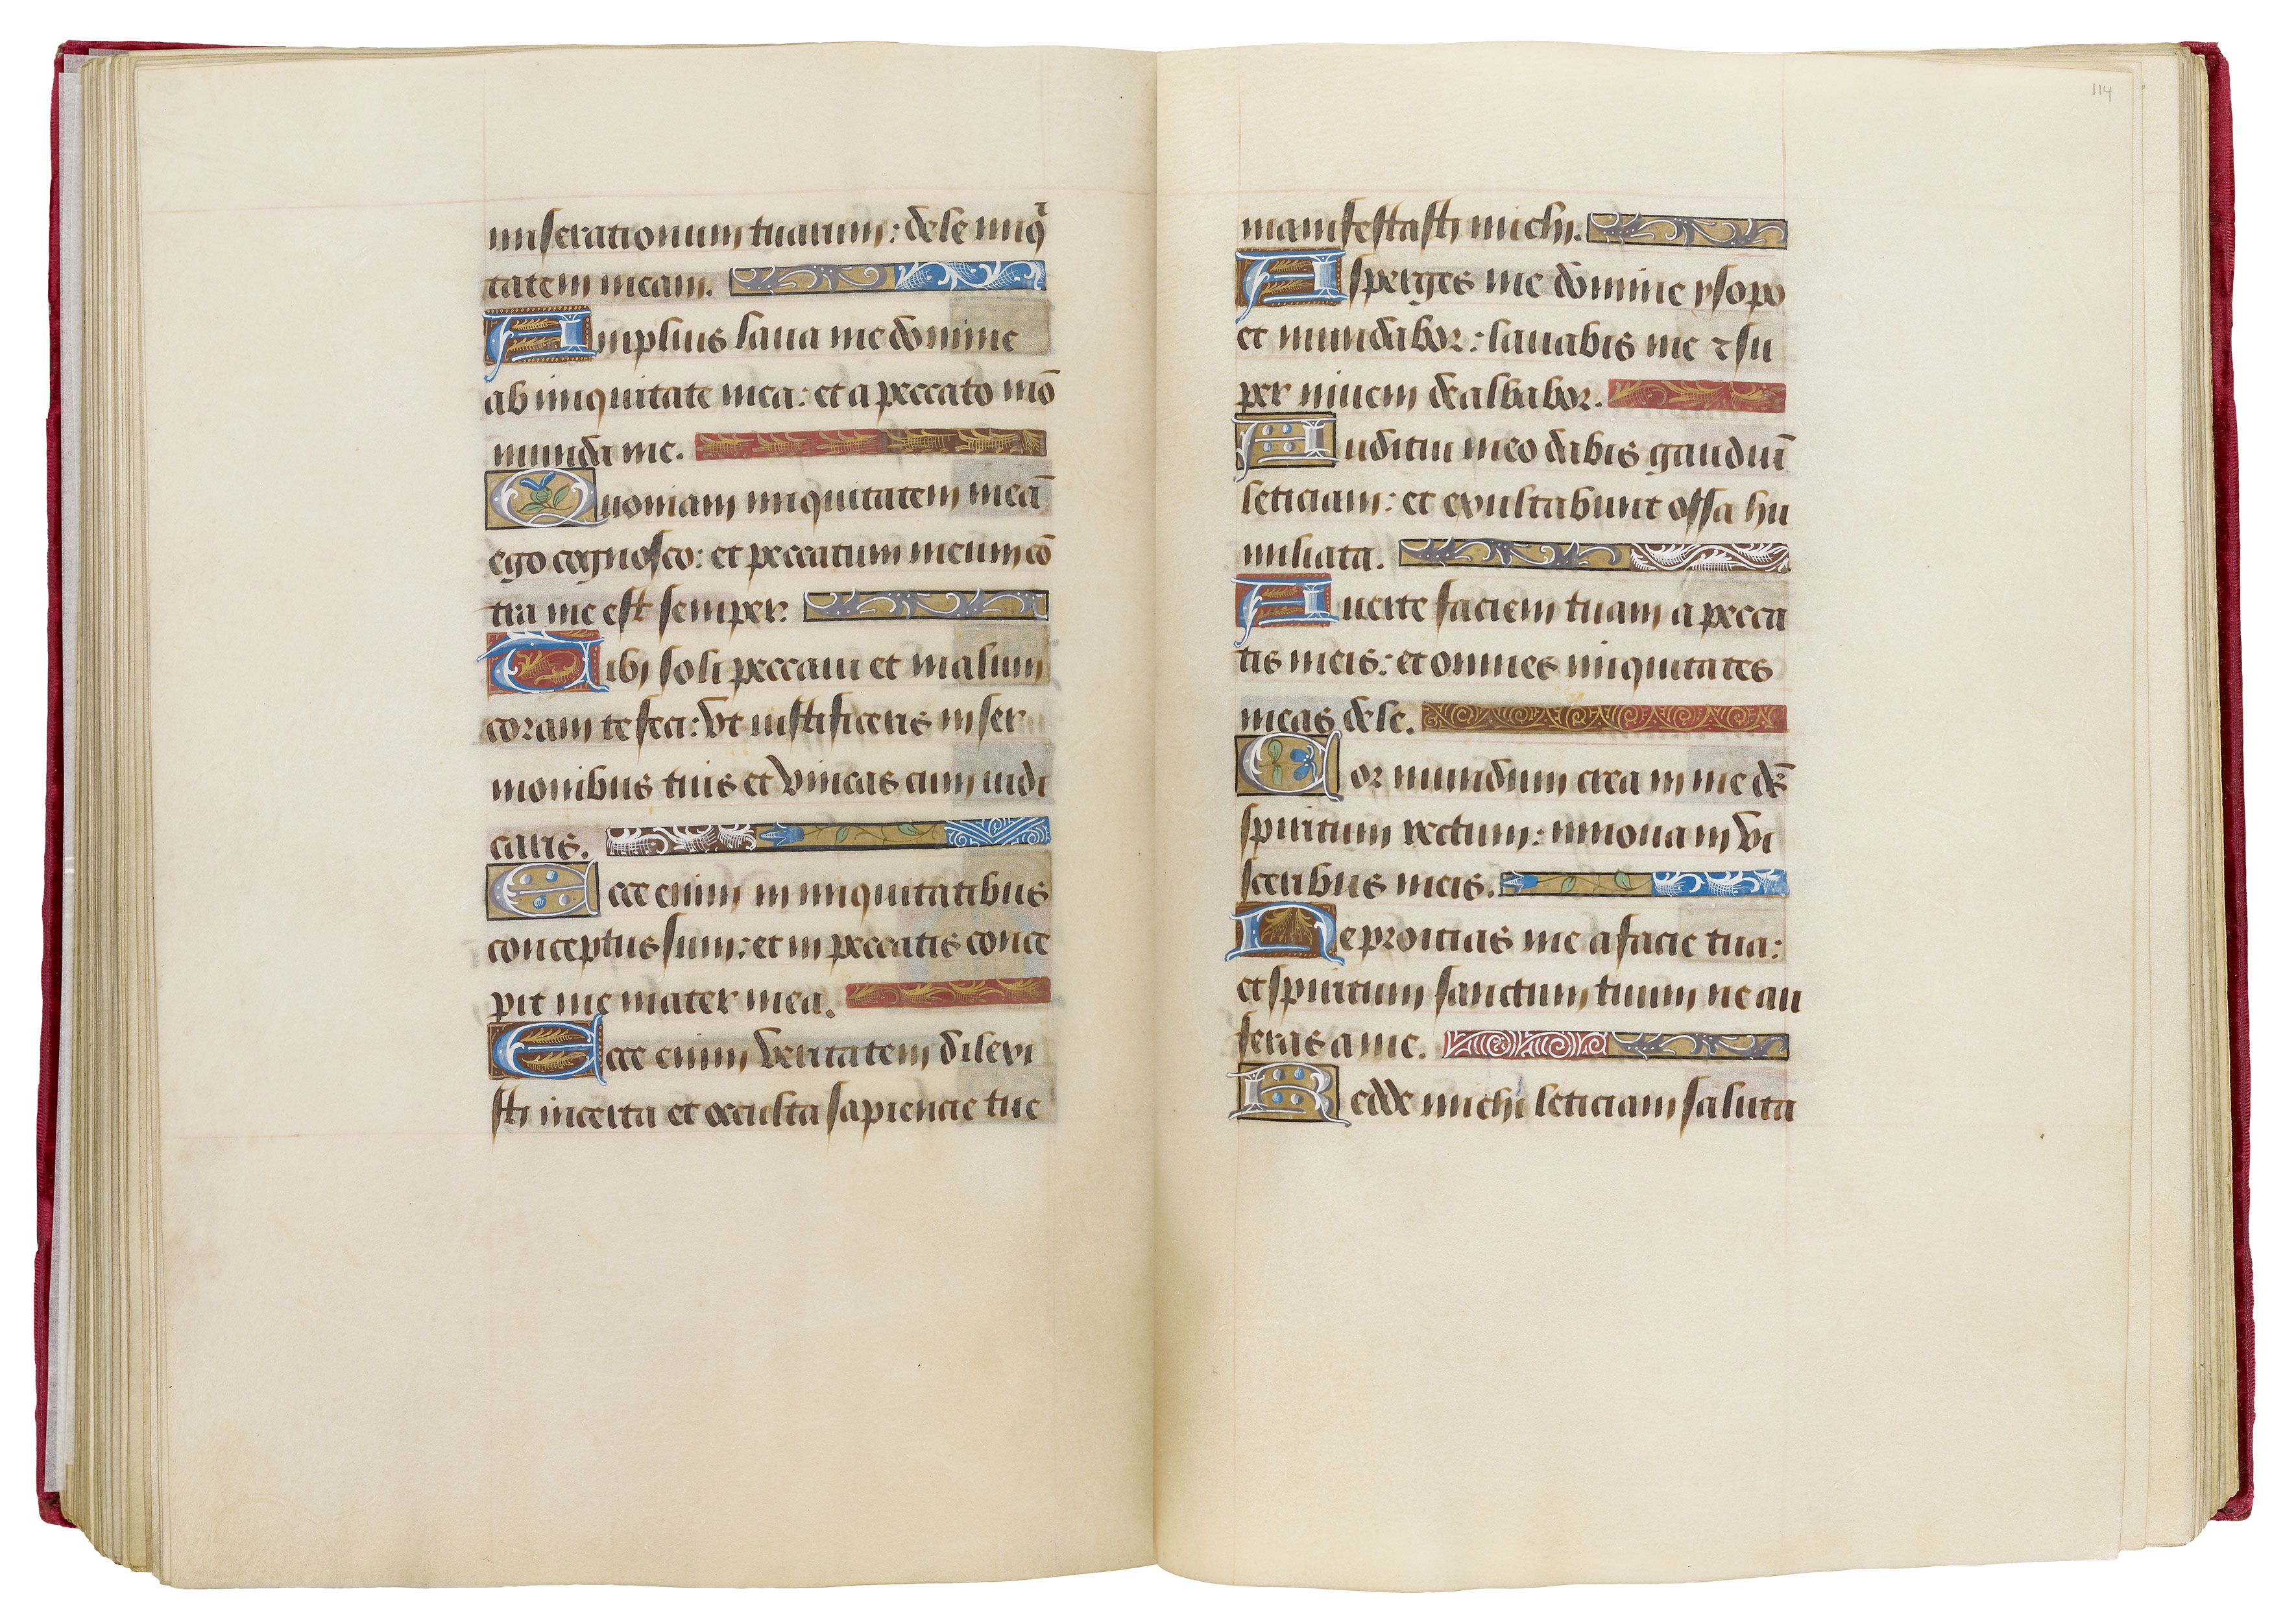 miserationum tuarum: dele iniqͥ
tatem meam.
Amplius laua me domine
ab iniquitate mea: et a peccato mēo
munda me.
Quoniam iniquitatem meā
ego cognosco: et peccatum meum cō
tra me est semper.
Tibi soli peccaui et malum
coram te feci: vt iustificeris in ser
monibus tuis et vincas cum iudi
caris.
Ecce enim in iniquitatibus
conceptus sum: et in peccatis conce
pit me mater mea.
Ecce enim veritatem dilexi
sti incerta et occulta sapiencie tue
114
manifestasti michi.
Asperges me domine ysopo
et mundabor: lauabis me ⁊ su
per niuem dealbabor.
Auditui meo dabis gaudiū
leticiam: et exultabunt ossa hu
miliata.
Auerte faciem tuam a pecca
tis meis: et omnes iniquitates
meas dele.
Cor mundum crea in me dēs
spiritum rectum: innoua in vi
sceribus meis.
Ne proicias me a facie tua:
et spiritum sanctum tuum ne au
feras a me.
Redde michi leticiam saluta